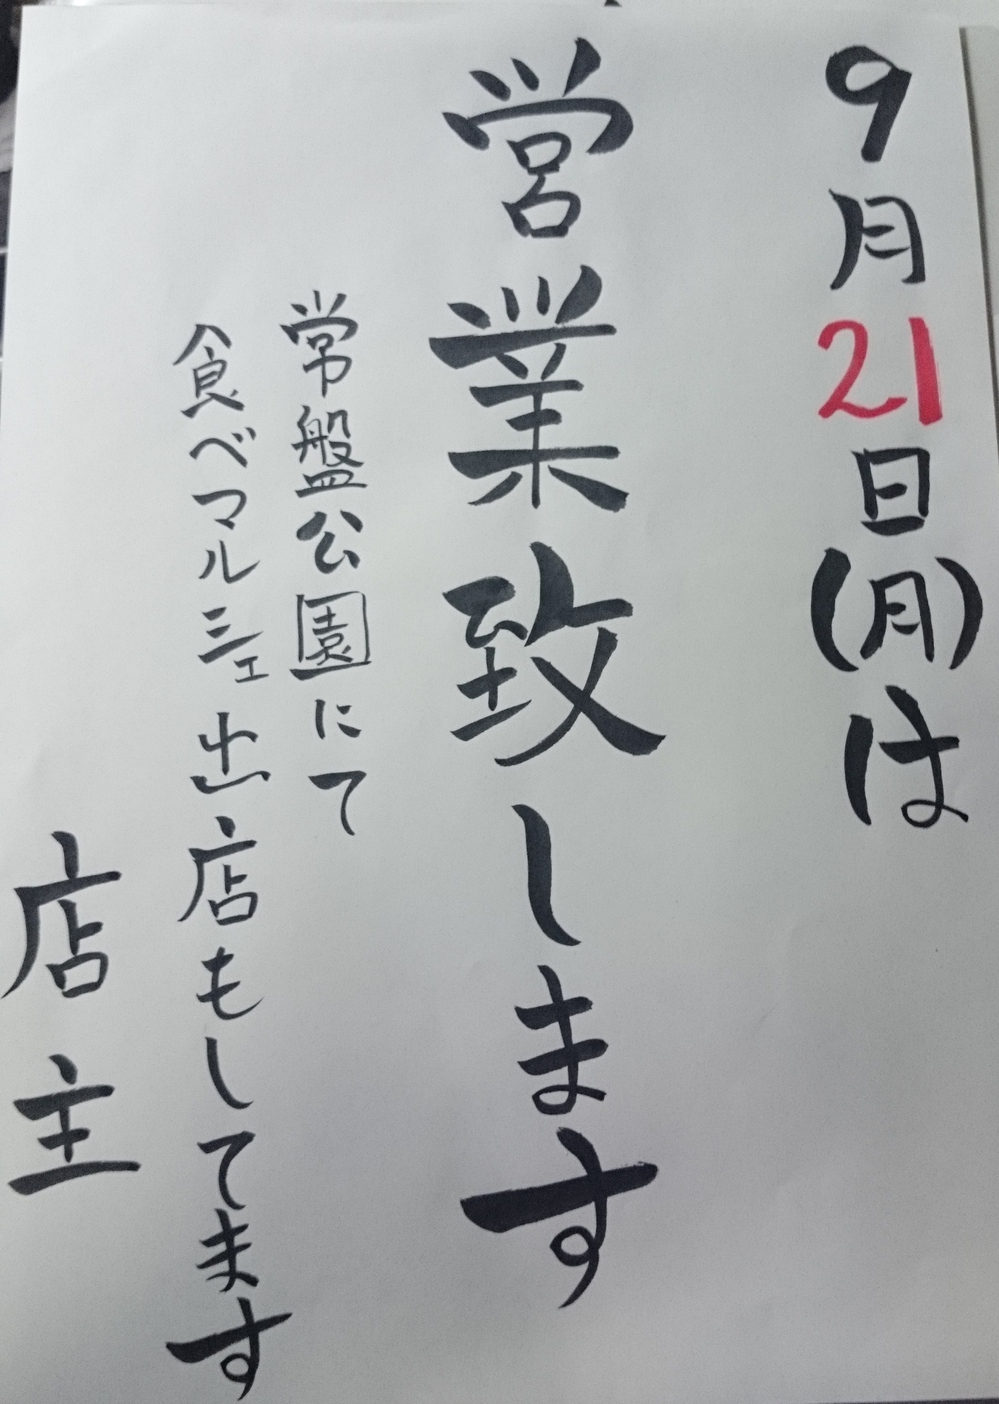 9月21日(月)は
営業致します
常盤公園にて
食べマルシェ出店もしてます
店主